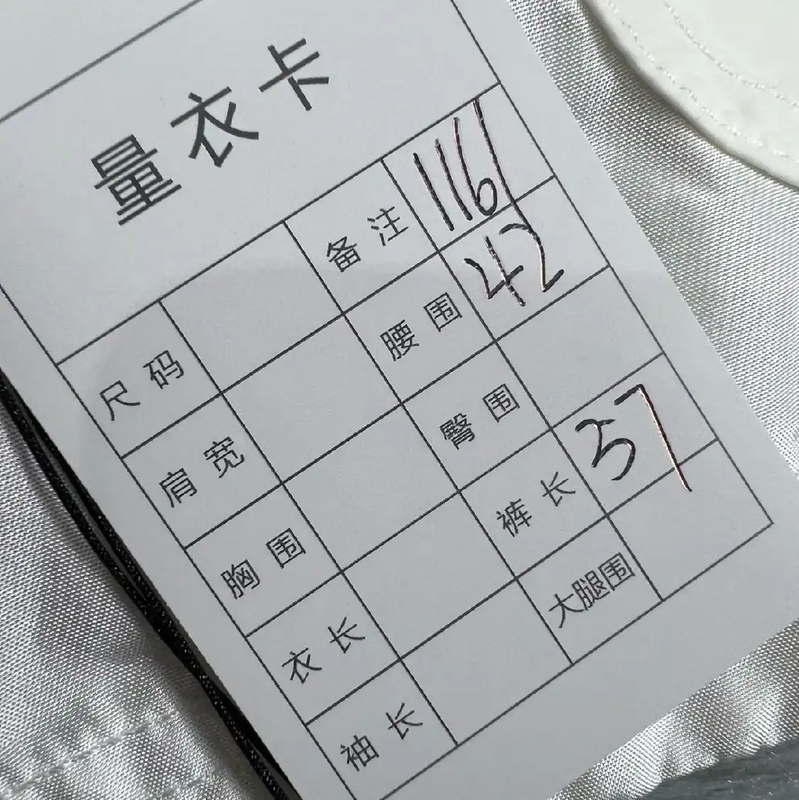 量衣卡
尺码 备注 1161
肩宽 腰围 42
胸围 臀围
衣长 裤长 37
袖长 大腿围